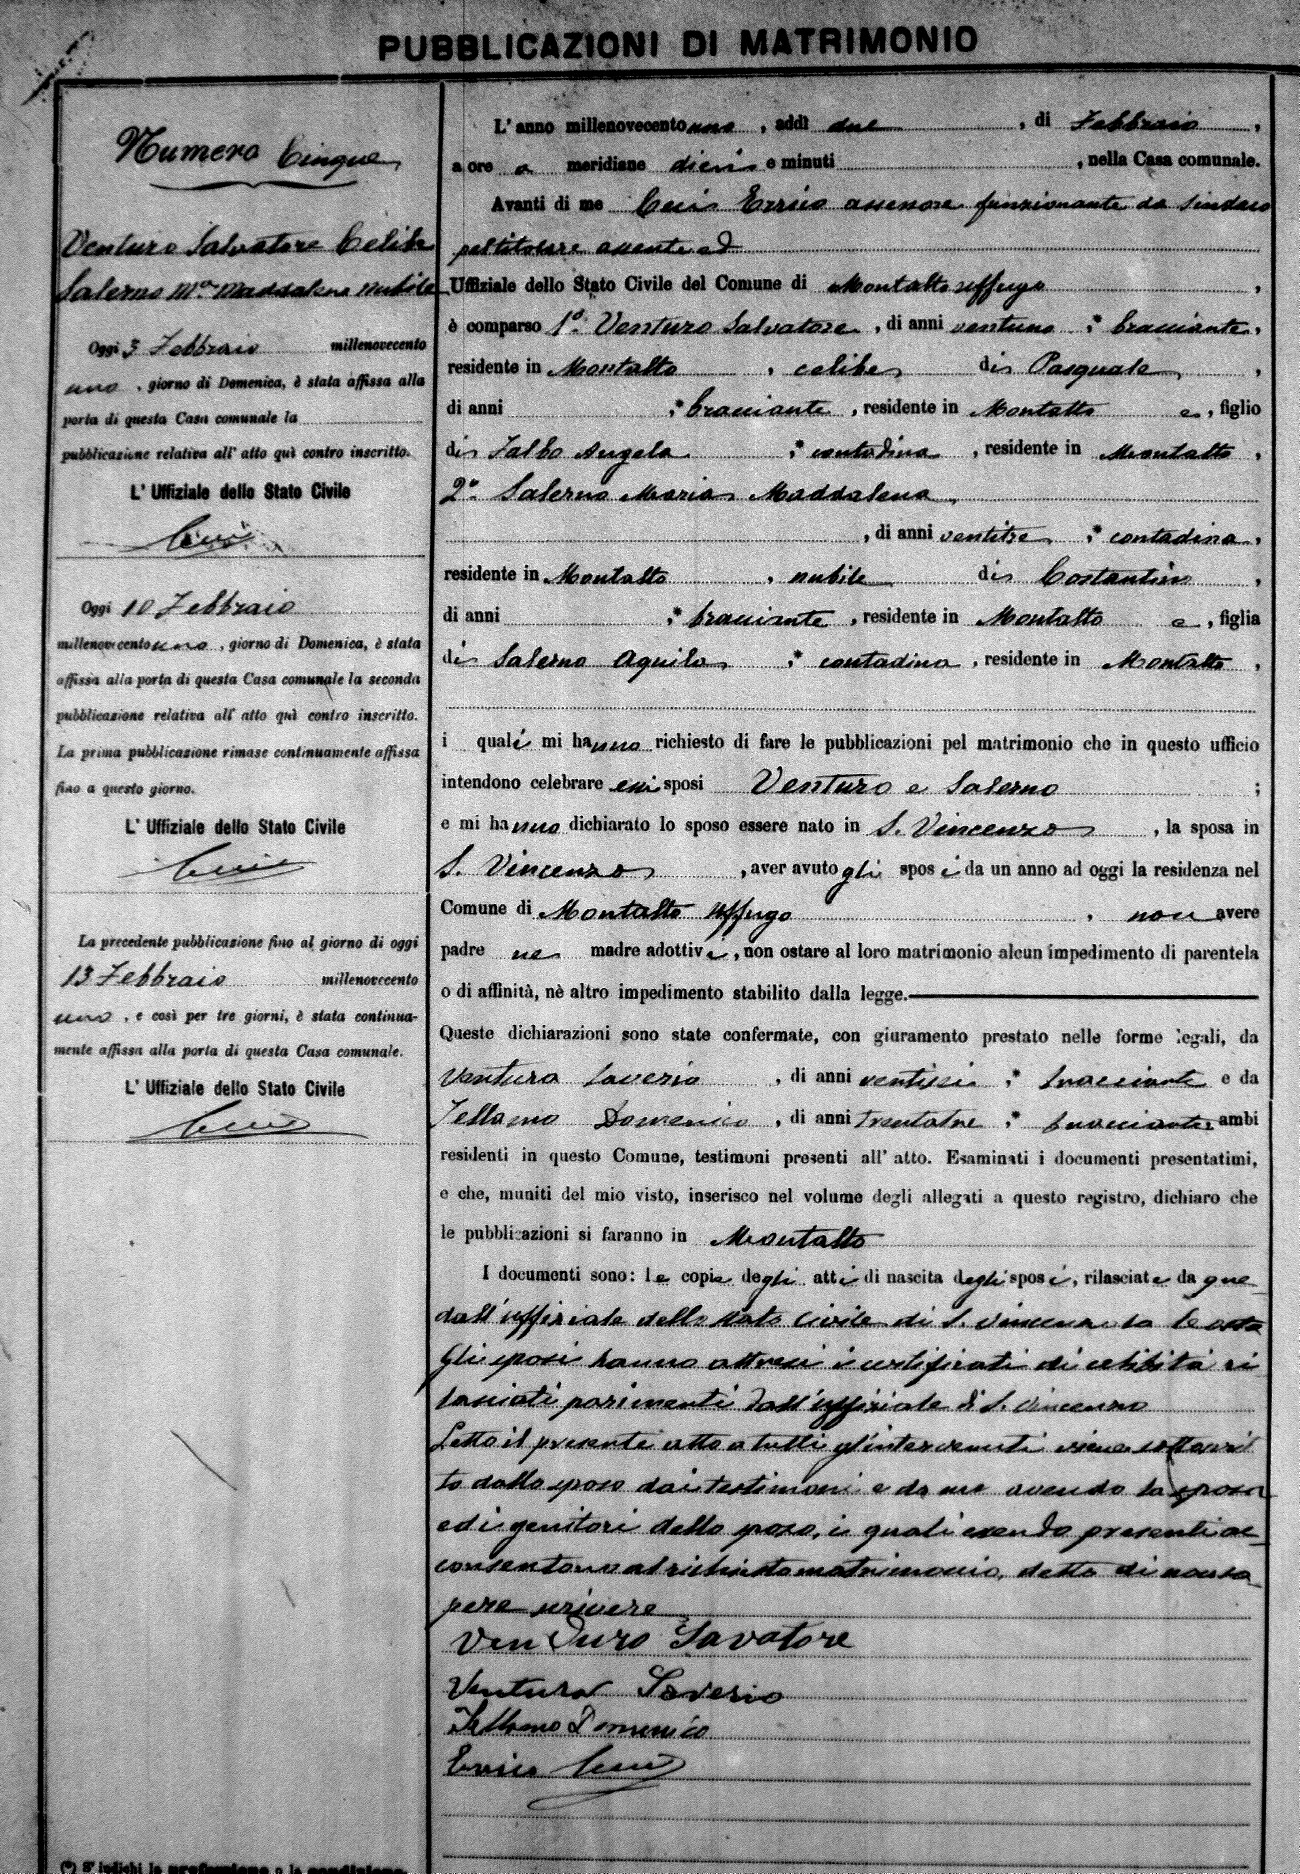 PUBBLICAZIONI DI MATRIMONIO
Numero Cinque
Venturo Salvatore Celibe
Salerno Ma. Maddalena nubile
Oggi 3 Febbraio millenovecento
uno, giorno di Domenica, è stata affissa alla
porta di questa Casa comunale la
pubblicazione relativa all' atto quì contro inscritto.
L' Uffiziale dello Stato Civile
Oggi 10 Febbraio
millenovecento uno, giorno di Domenica, è stata
affissa alla porta di questa Casa comunale la seconda
pubblicazione relativa all' atto quì contro inscritto.
La prima pubblicazione rimase continuamente affissa
fino a questo giorno.
L' Uffiziale dello Stato Civile
La precedente pubblicazione fino al giorno di oggi
13 Febbraio millenovecento
uno, e così per tre giorni, è stata continua-
mente affissa alla porta di questa Casa comunale.
L' Uffiziale dello Stato Civile
(*) S' indichi la professione o la condizione
L' anno millenovecento uno, addì due, di Febbraio,
a ore a meridiane dieci e minuti , nella Casa comunale.
Avanti di me Errico assessore funzionante da Sindaco
pel titolare assente ed
Uffiziale dello Stato Civile del Comune di Montalto Uffugo,
è comparso 1º. Venturo Salvatore, di anni ventuno, * bracciante,
residente in Montalto, celibe di Pasquale,
di anni , * bracciante, residente in Montalto e, figlio
di Falbo Angela, * contadina, residente in Montalto,
2º. Salerno Maria Maddalena,
, di anni ventitre, * contadina,
residente in Montalto, nubile di Costantino,
di anni , * bracciante, residente in Montalto e, figlia
di Salerno Aquila, * contadina, residente in Montalto,
i quali mi hanno richiesto di fare le pubblicazioni pel matrimonio che in questo ufficio
intendono celebrare essi sposi Venturo e Salerno ;
e mi hanno dichiarato lo sposo essere nato in S. Vincenzo, la sposa in
S. Vincenzo, aver avuto gli sposi da un anno ad oggi la residenza nel
Comune di Montalto Uffugo, non avere
padre ne madre adottivi, non ostare al loro matrimonio alcun impedimento di parentela
o di affinità, nè altro impedimento stabilito dalla legge.
Queste dichiarazioni sono state confermate, con giuramento prestato nelle forme legali, da
Ventura Saverio, di anni ventisei, * bracciante e da
Tellamo Domenico, di anni trentatre, * bracciante ambi
residenti in questo Comune, testimoni presenti all' atto. Esaminati i documenti presentatimi,
e che, muniti del mio visto, inserisco nel volume degli allegati a questo registro, dichiaro che
le pubblicazioni si faranno in Montalto
I documenti sono: le copie degli atti di nascita degli sposi, rilasciate da que
dall'uffiziale dello stato civile di S. Vincenzo la
Gli sposi hanno attresi i certificati di celibità ri
lasciati parimenti dall'uffiziale di S. Vincenzo
Letto il presente atto a tutti gl'intervenuti viene sottoscrit
to dallo sposo dai testimoni e da me avendo la sposa
ed i genitori dello sposo, i quali essendo presenti ac
consentono al richiesto matrimonio, detto di non sa
pere scrivere
Venturo Savatore
Ventura Saverio
Tellamo Domenico
Errico